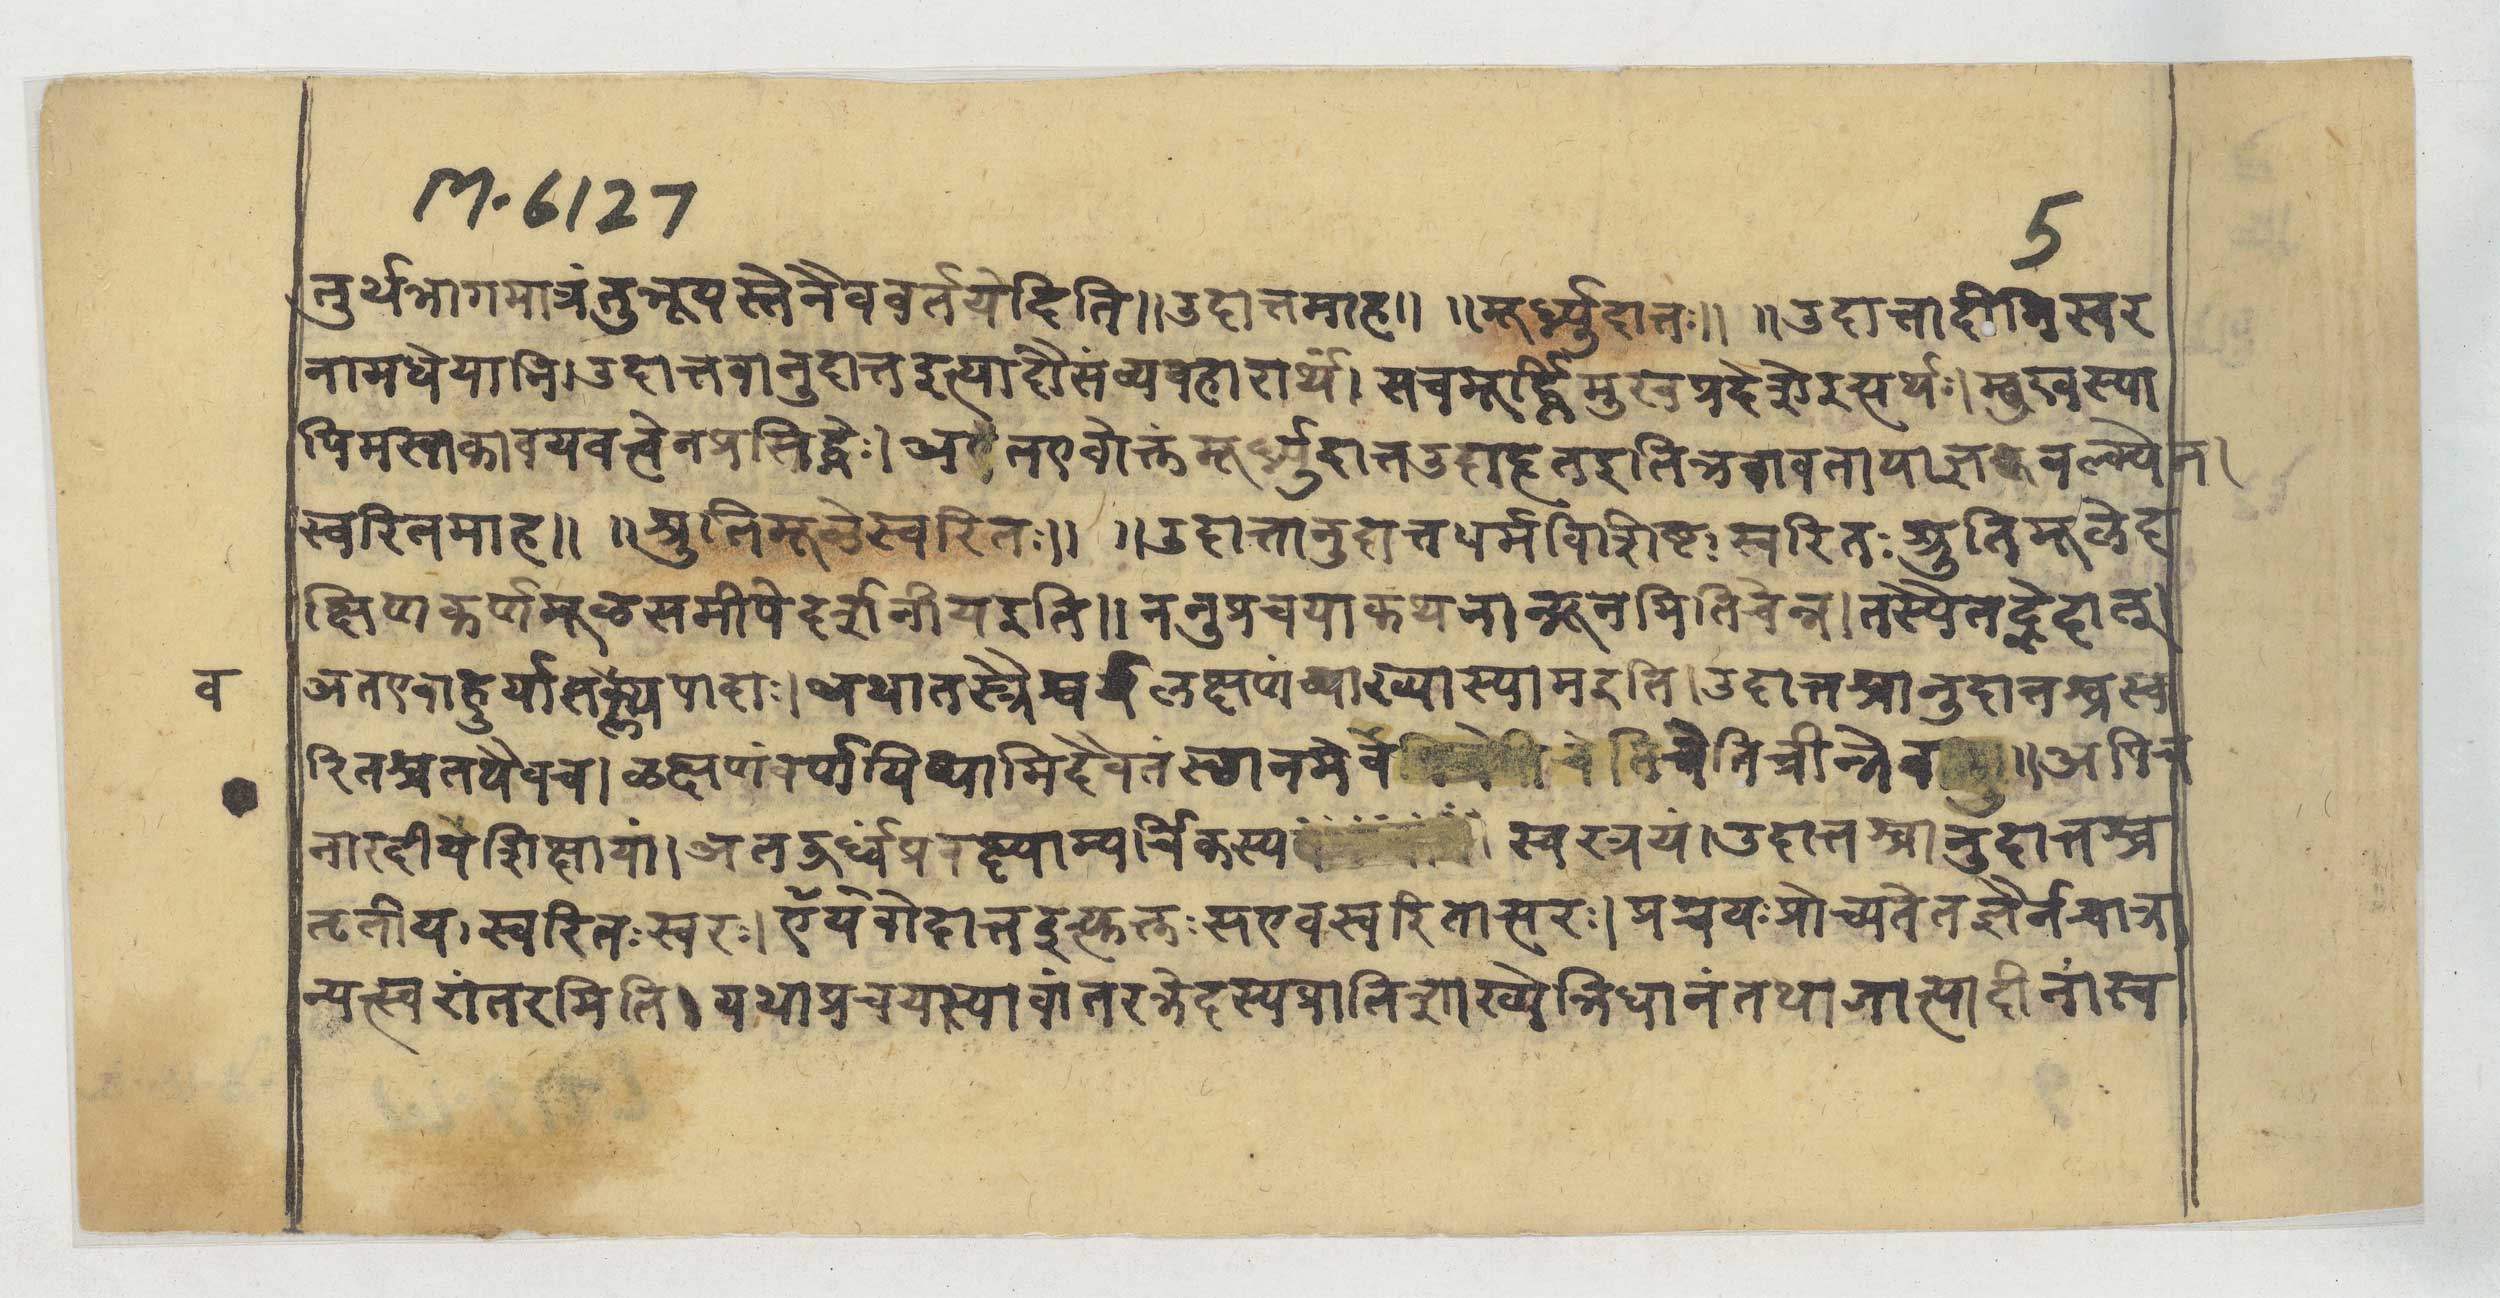 M. 6127
5
तुर्थभागमात्रं तु भूयस्तेनैव वर्तयेदिति॥ उदात्तमाह॥ ॥मूर्ध्न्युदात्तः॥ ॥उदात्तादीनि स्वर
नामधेयानि। उदात्तवानुदात्त इत्यादौ संव्यवहारार्थं। सचमूर्ध्नि मुखप्रदेशे इत्यर्थः। मुखस्या
पि मस्तकावयवत्वेन प्रसिद्धेः। अत एवोक्तं मूर्ध्न्युदात्त उदाहृत इति भगवता याज्ञवल्क्येन।
स्वरितमाह॥ ॥श्रुतिमूळे स्वरितः॥ ॥उदात्तानुदात्तधर्मविशिष्टः स्वरितः श्रुतिमूळे द
क्षिणकर्णमूळसमीपे दर्शनीय इति॥ ननु प्रचयाकथनान्न्यूनमिति चेन्न। तस्यैतद्भेदात्
व
अत एवाहुर्याज्ञवल्क्यपादाः। अथातस्त्रैस्वर्यलक्षणं व्याख्यास्याम इति। उदात्तश्चानुदात्तश्च स्व
रितश्च तथैव च। ळक्षणं वर्णयिष्यामि दैवतं स्थानमेव चेति त्रीन्नेव ॥ अपि च
नारदीये शिक्षायां। अत ऊर्ध्वं प्रवक्ष्याम्यर्चिकस्य स्वरत्रयं। उदात्तश्चानुदात्तश्च
तृतीयः स्वरितः स्वरः। एवोदात्त इत्युक्तः स एव स्वरितात्परः। प्रचयः प्रोच्यते तज्ञैर्नचात्रा
न्यत्स्वरांतरमिति। यथा प्रचयस्यावांतरभेदस्य प्रातिशाख्येभिधानं तथा जात्यादीनां स्व